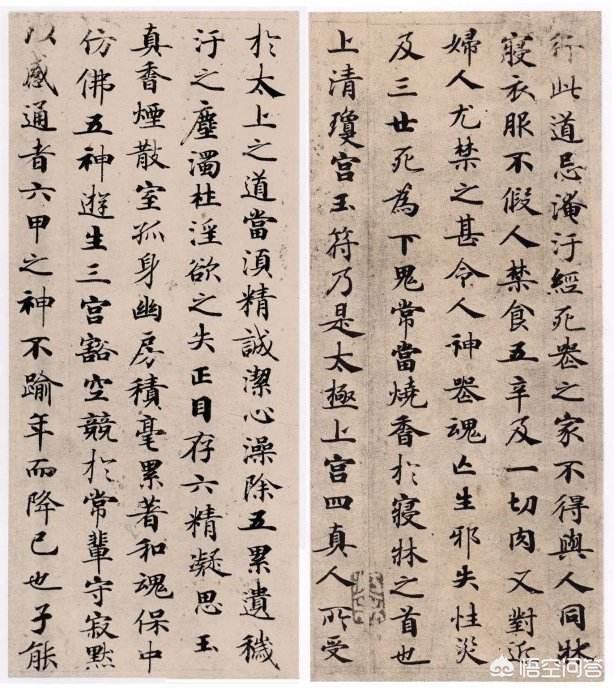 行此道忌淹汙經死喪之家不得與人同牀
寢衣服不假人禁食五辛及一切肉又對近
婦人尤禁之甚令人神喪魂亡生邪失性災
及三世死為下鬼常當燒香於寢牀之首也
上清瓊宮玉符乃是太極上宮四真人所受
於太上之道當須精誠潔心澡除五累遺穢
汙之塵濁杜淫欲之失正目存六精凝思玉
真香煙散室孤身幽房積毫累著和魂保中
仿佛五神遊生三宮豁空競於常輩守寂默
以感通者六甲之神不踰年而降己也子能
悟空问答